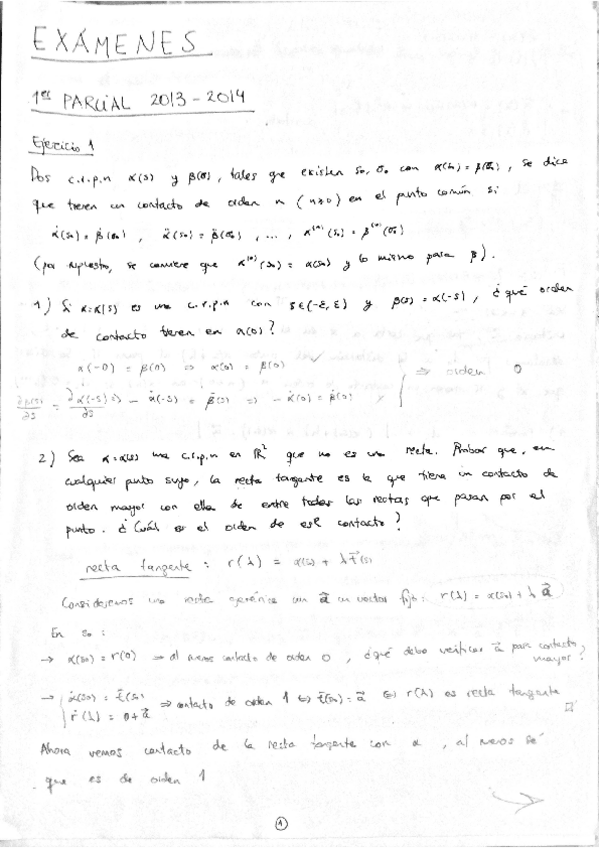 EXÁMENES
1er PARCIAL 2013-2014
Ejercicio 1
Dos c.r.p.n α(s) y β(σ), tales que existen s₀, σ₀ con α(s₀) = β(σ₀), se dice
que tienen un contacto de orden n (n≥0) en el punto común si
α̇(s₀) = β̇(σ₀), α̈(s₀) = β̈(σ₀), ..., α⁽ⁿ⁾(s₀) = β⁽ⁿ⁾(σ₀)
(por supuesto, se conviene que α⁽⁰⁾(s₀) = α(s₀) y lo mismo para β).
1) Si α=α(s) es una c.r.p.n con s∈(-ε, ε) y β(s) = α(-s), ¿qué orden
de contacto tienen en α(0)?
α(-0) = β(0) ⇒ α(0) = β(0)
⇒ orden 0
∂β(s)/∂s = ∂α(-s)/∂s ⇒ - α̇(-s) = β̇(s) ⇒ - α̇(0) = β̇(0)
2) Sea α=α(s) una c.r.p.n en ℝ² que no es una recta. Probar que, en
cualquier punto suyo, la recta tangente es la que tiene un contacto de
orden mayor con ella de entre todas las rectas que pasan por el
punto. ¿Cuál es el orden de ese contacto?
recta tangente: r(λ) = α(s₀) + λ t⃗(s₀)
Consideremos una recta genérica con a⃗ un vector fijo: r(λ) = α(s₀) + λ a⃗
En s₀:
→ α(s₀) = r(0) ⇒ al menos contacto de orden 0, ¿qué debo verificar a⃗ para contacto
mayor?
→ { α̇(s₀) = t⃗(s₀)
ṙ(λ) = 0 + a⃗ ⇒ contacto de orden 1 ⇔ t⃗(s₀) = a⃗ ⇔ r(λ) es recta tangente
Ahora vemos contacto de la recta tangente con α, al menos sé
que es de orden 1
1